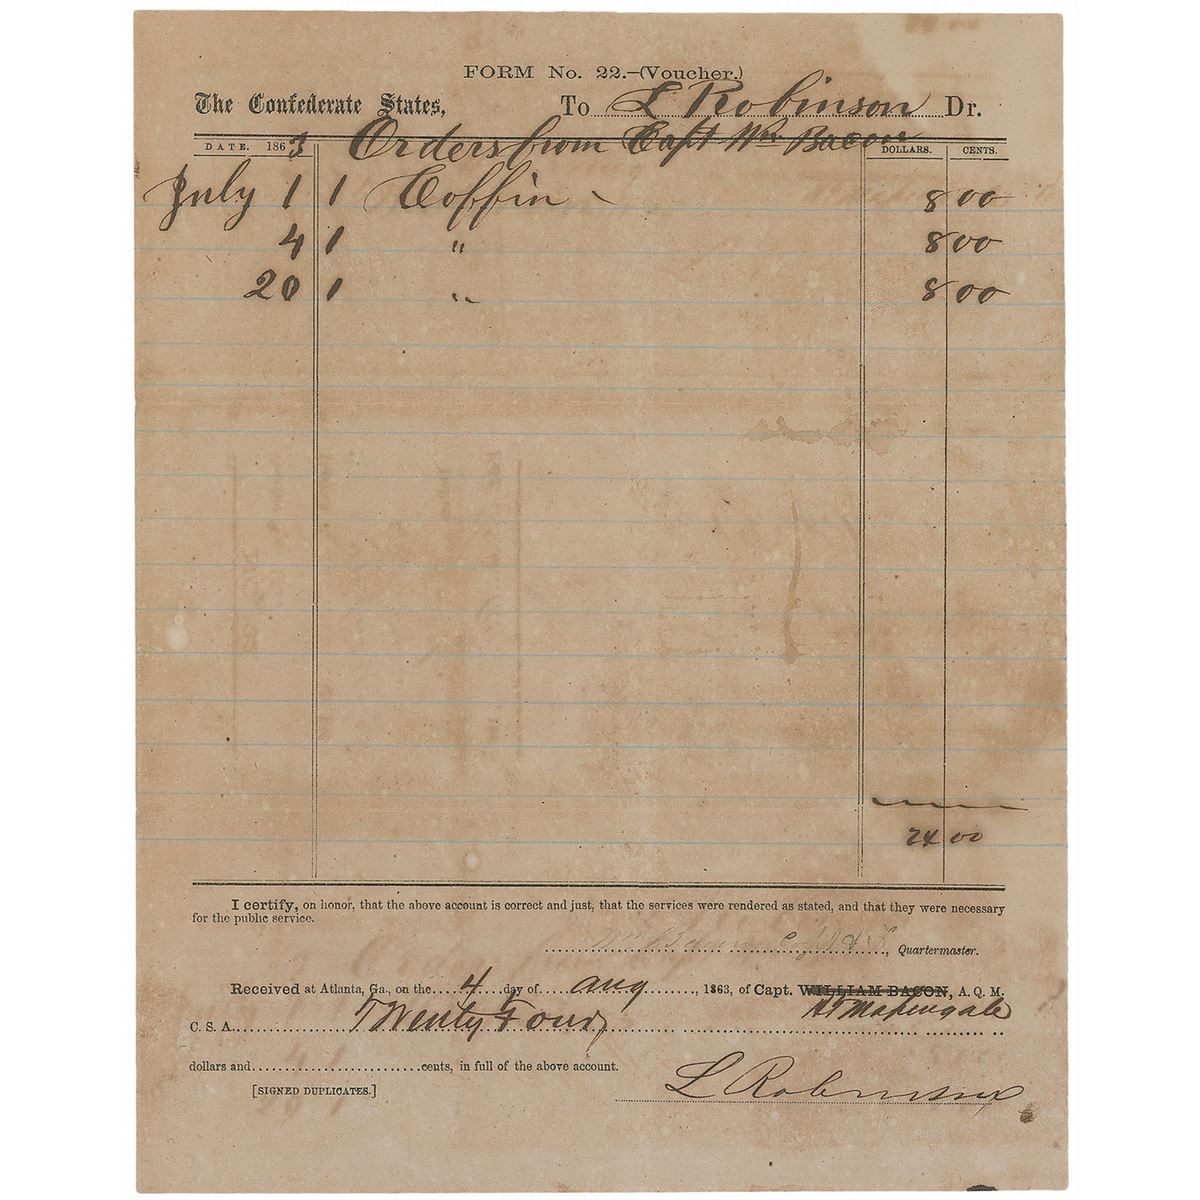 FORM No. 22.—(Voucher.)
The Confederate States, To L Robinson Dr.
DATE. 1863 Orders from Capt Wm Bacon DOLLARS. CENTS.
July 1 1 Coffin 8 00
4 1 " 8 00
20 1 " 8 00
24 00
I certify, on honor, that the above account is correct and just, that the services were rendered as stated, and that they were necessary
for the public service.
Wm Bacon, Quartermaster.
Received at Atlanta, Ga., on the 4 day of aug, 1863, of Capt. WILLIAM BACON, A. Q. M.
C. S. A. Twenty Four
dollars and cents, in full of the above account.
[SIGNED DUPLICATES.] L Robinson